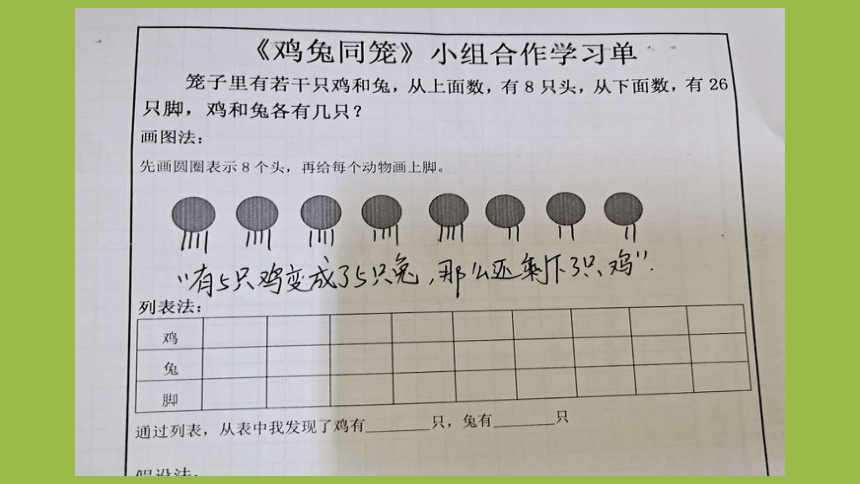 《鸡兔同笼》小组合作学习单
笼子里有若干只鸡和兔，从上面数，有8只头，从下面数，有26
只脚，鸡和兔各有几只？
画图法：
先画圆圈表示8个头，再给每个动物画上脚。
“有5只鸡变成了5只兔，那么还剩下3只鸡”.
列表法：
鸡
兔
脚
通过列表，从表中我发现了鸡有______只，兔有______只
假设法：